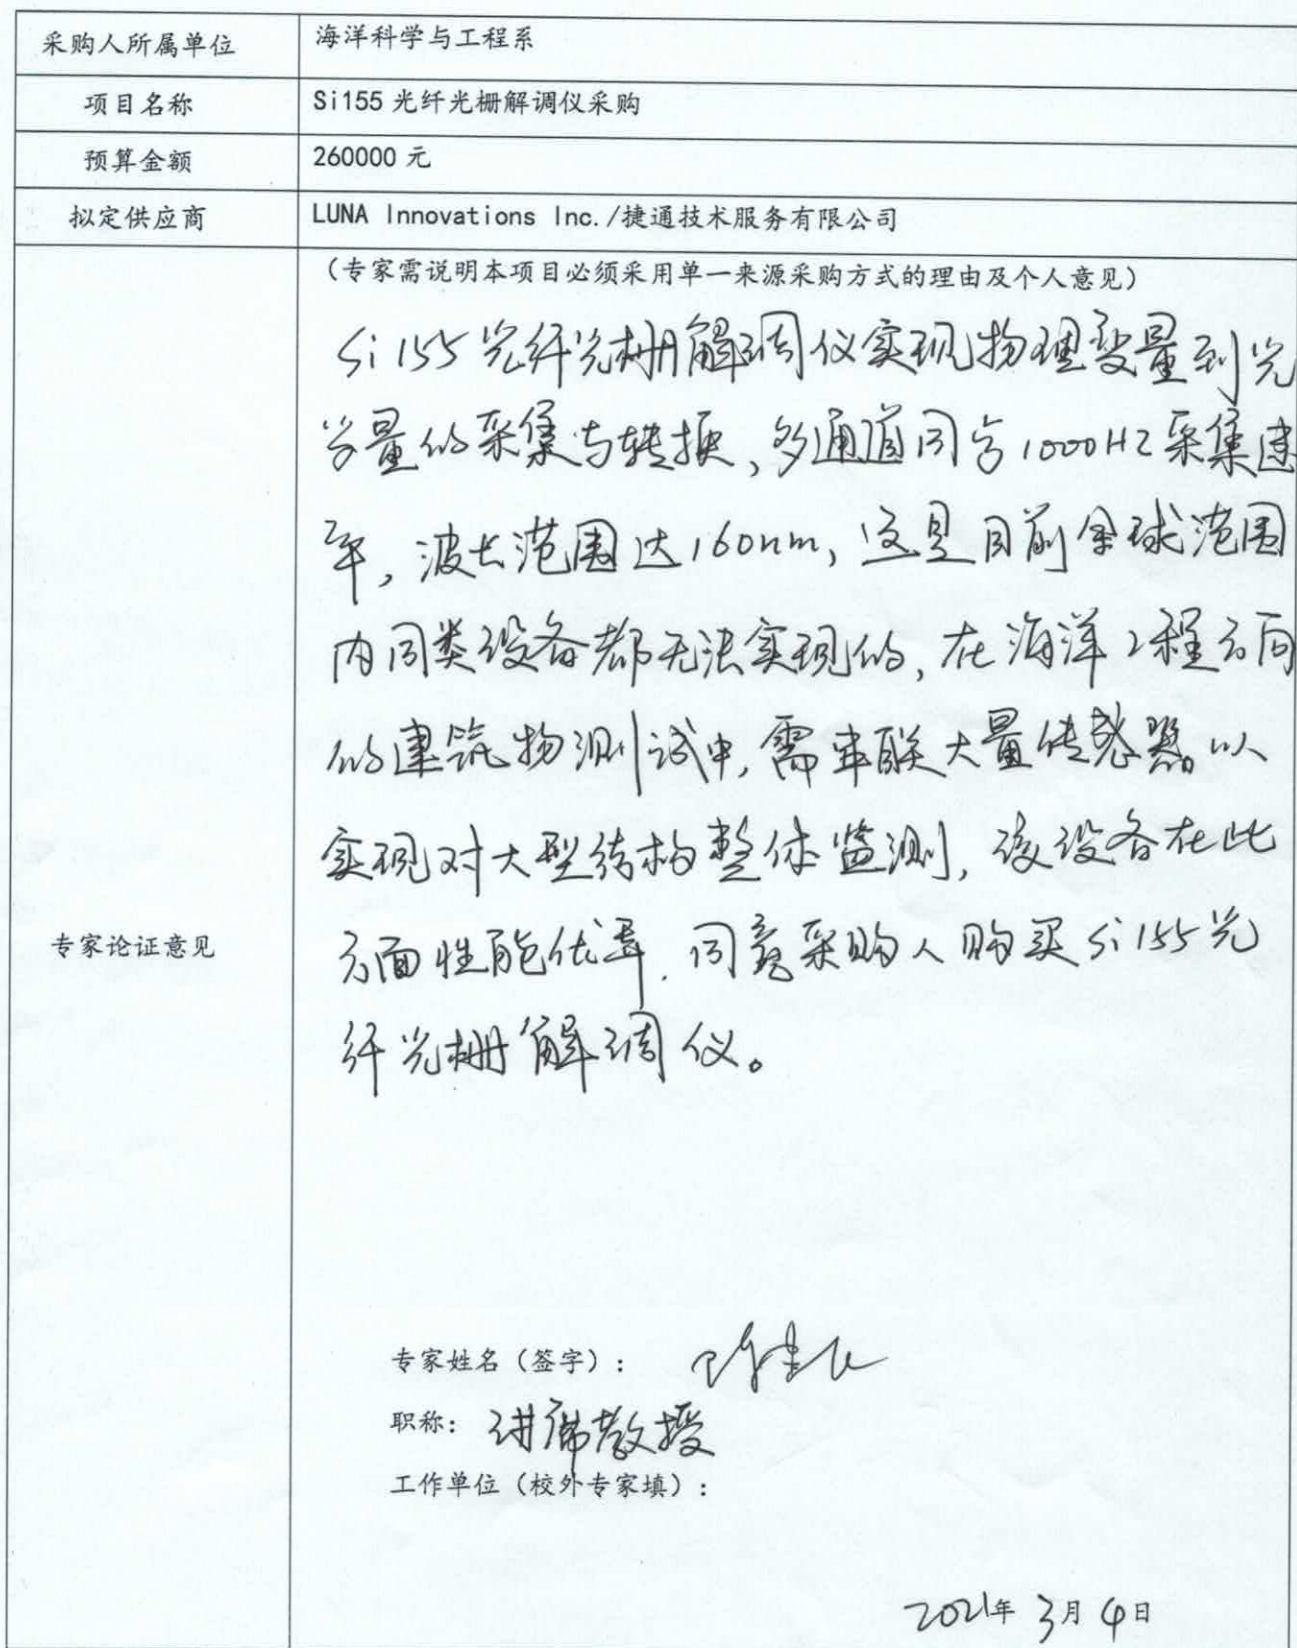 采购人所属单位 海洋科学与工程系
项目名称 Si155 光纤光栅解调仪采购
预算金额 260000 元
拟定供应商 LUNA Innovations Inc./捷通技术服务有限公司
（专家需说明本项目必须采用单一来源采购方式的理由及个人意见）
Si155光纤光栅解调仪实现物理变量到光
学量的采集与转换，多通道同步1000HZ采集速
率，波长范围达160nm，这是目前全球范围
内同类设备都无法实现的，在海洋工程方向
的建筑物测试中，需串联大量传感器以
实现对大型结构整体监测，该设备在此
专家论证意见 方面性能优异，同意采购人购买Si155光
纤光栅解调仪。
专家姓名（签字）：
职称：讲席教授
工作单位（校外专家填）：
2021年3月4日